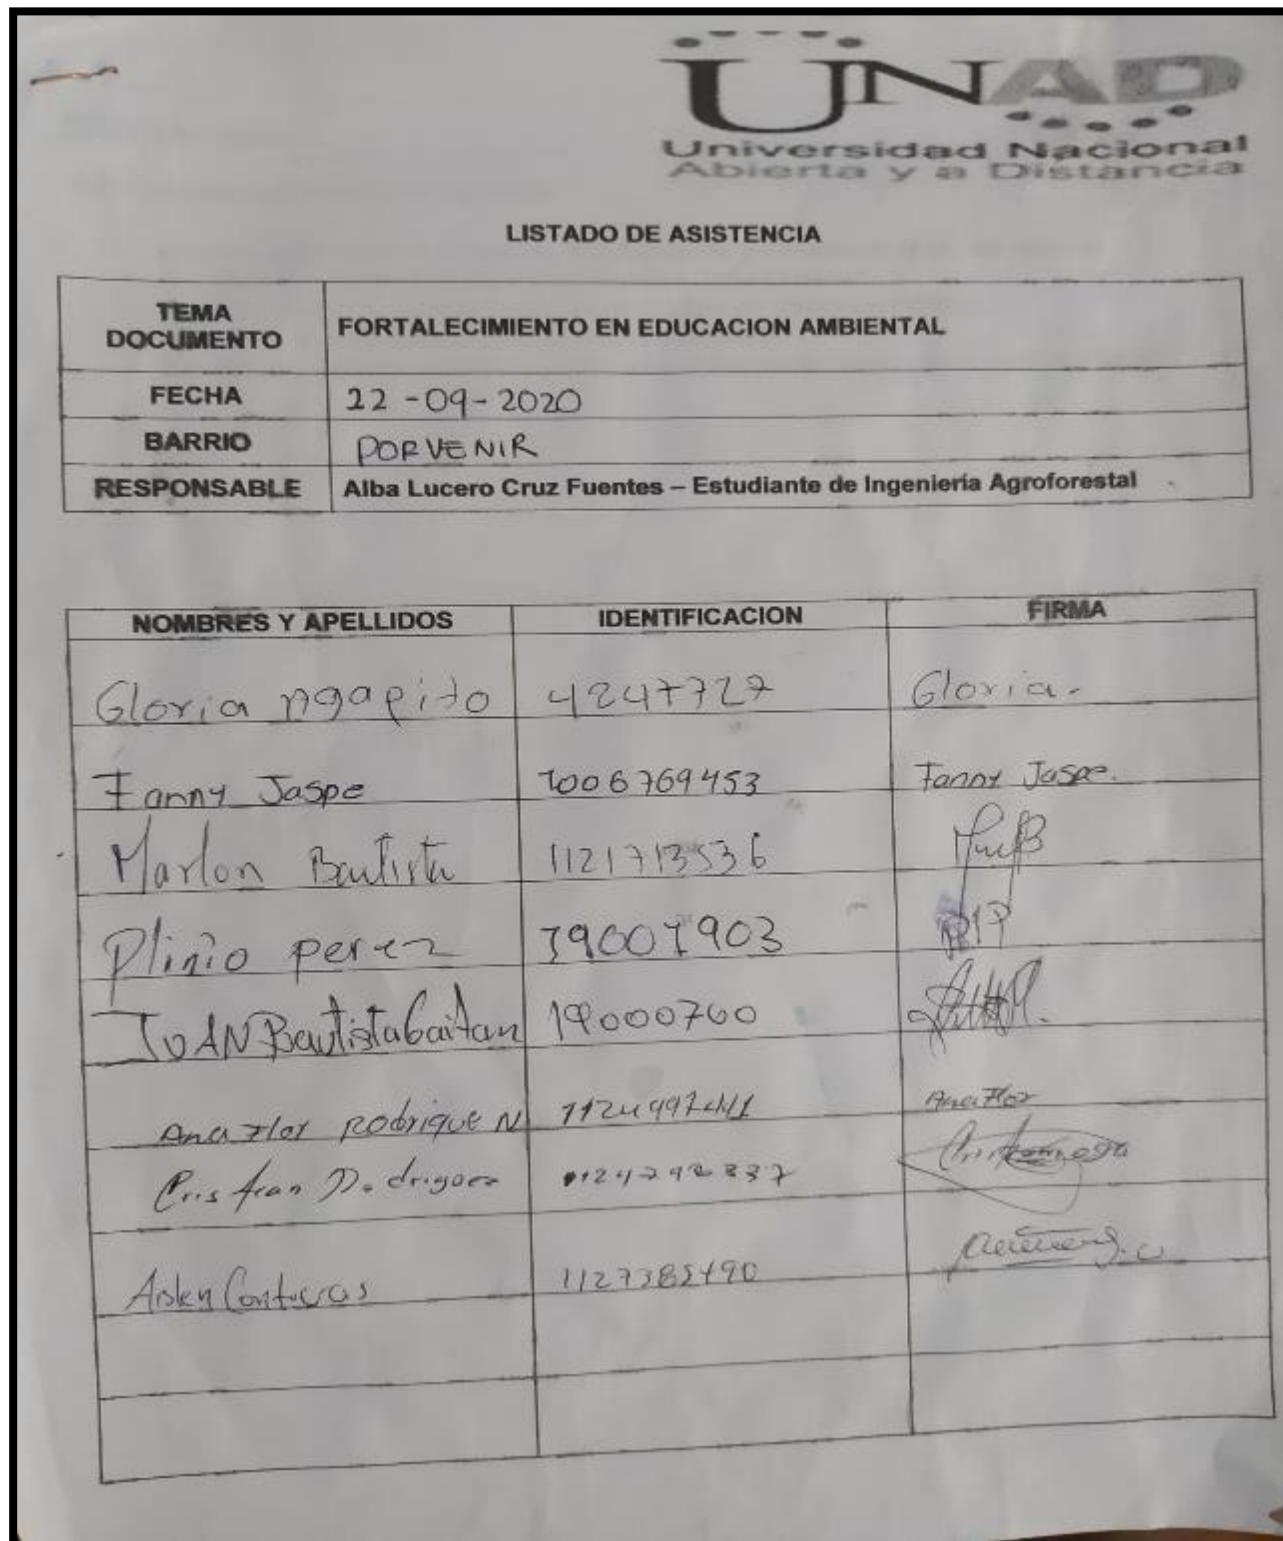 UNAD
Universidad Nacional
Abierta y a Distancia
LISTADO DE ASISTENCIA
TEMA DOCUMENTO FORTALECIMIENTO EN EDUCACION AMBIENTAL
FECHA 22-09-2020
BARRIO PORVENIR
RESPONSABLE Alba Lucero Cruz Fuentes – Estudiante de Ingeniería Agroforestal
NOMBRES Y APELLIDOS IDENTIFICACION FIRMA
Gloria 4247727 Gloria.
Fanny Jaspe 1006769453 Fanny Jaspe.
Marlon Bautista 1121713536
Plinio perez
JUAN Bautista Gaitan 19000760
Ana Flor Rodrigue N Ana Flor
Contreras